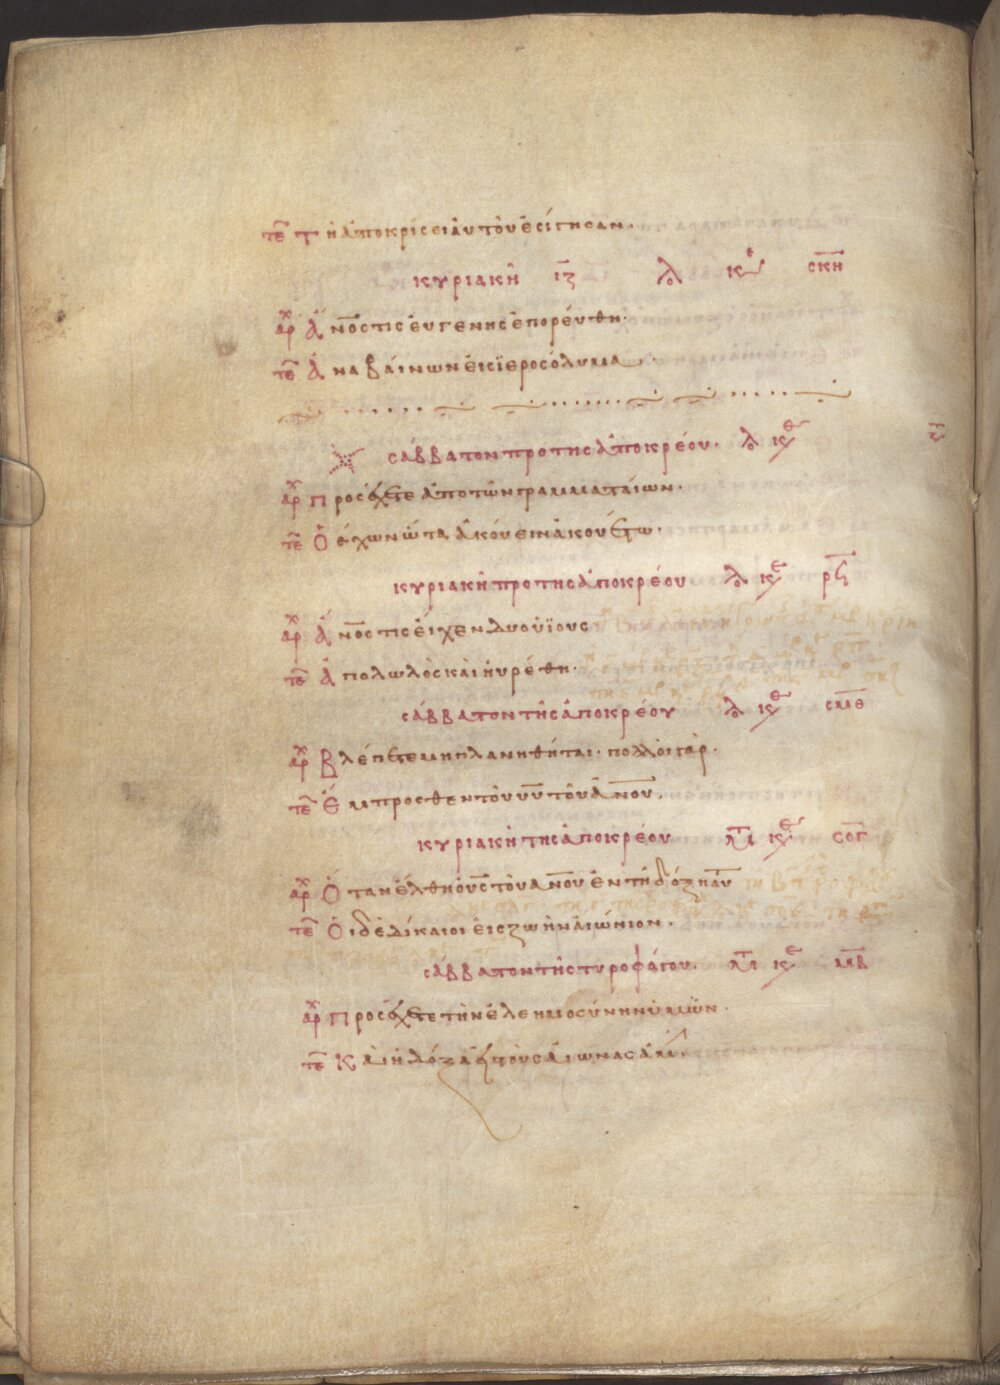 τε Τῆ ἀποκρίσει αὐτοῦ ἐσίγησαν.
κυριακῆ ιζ λο κε σκη
αρ Ἄνος τις εὐγενης ἐπορεύθη.
τε Ἀναβαίνων εἰς ϊεροσόλυμα.
σάββατον προ της ἀποκρέου. λο κε
αρ Προσέχετε ἀπο τῶν γραμματαίων.
τε Ὁ ἔχων ὦτα ἀκούειν ἀκουέτω.
κυριακῆ προ της ἀποκρέου λο κε ρϛ
αρ Ἄνος τις εἶχεν δυο ϋἱους
τε Ἀπολωλὸς καὶ ηὑρέθη.
σάββατον τῆς ἀποκρέου λο κε σμθ
αρ Βλέπετε μη πλανηθῆται. πολλοὶ γὰρ.
τε Ἔμπροσθεν τοῦ υυ τοῦ ἀνου.
κυριακῆ της ἀποκρέου μτ κε σογ
αρ Ὅταν ἔλθη ὁ υς του ανου ἐν τῆ δόξη αυ
τε Οἱ δὲ δίκαιοι εἰς ζωὴν αἰώνιον.
σάββατον τῆς τυροφάγου. μτ κε μβ
αρ Προσέχετε τὴν ἐλεημοσύνην ὑμῶν.
τε Καὶ ἡ δόξα εἰς τοὺς αἰωνας ἀμ